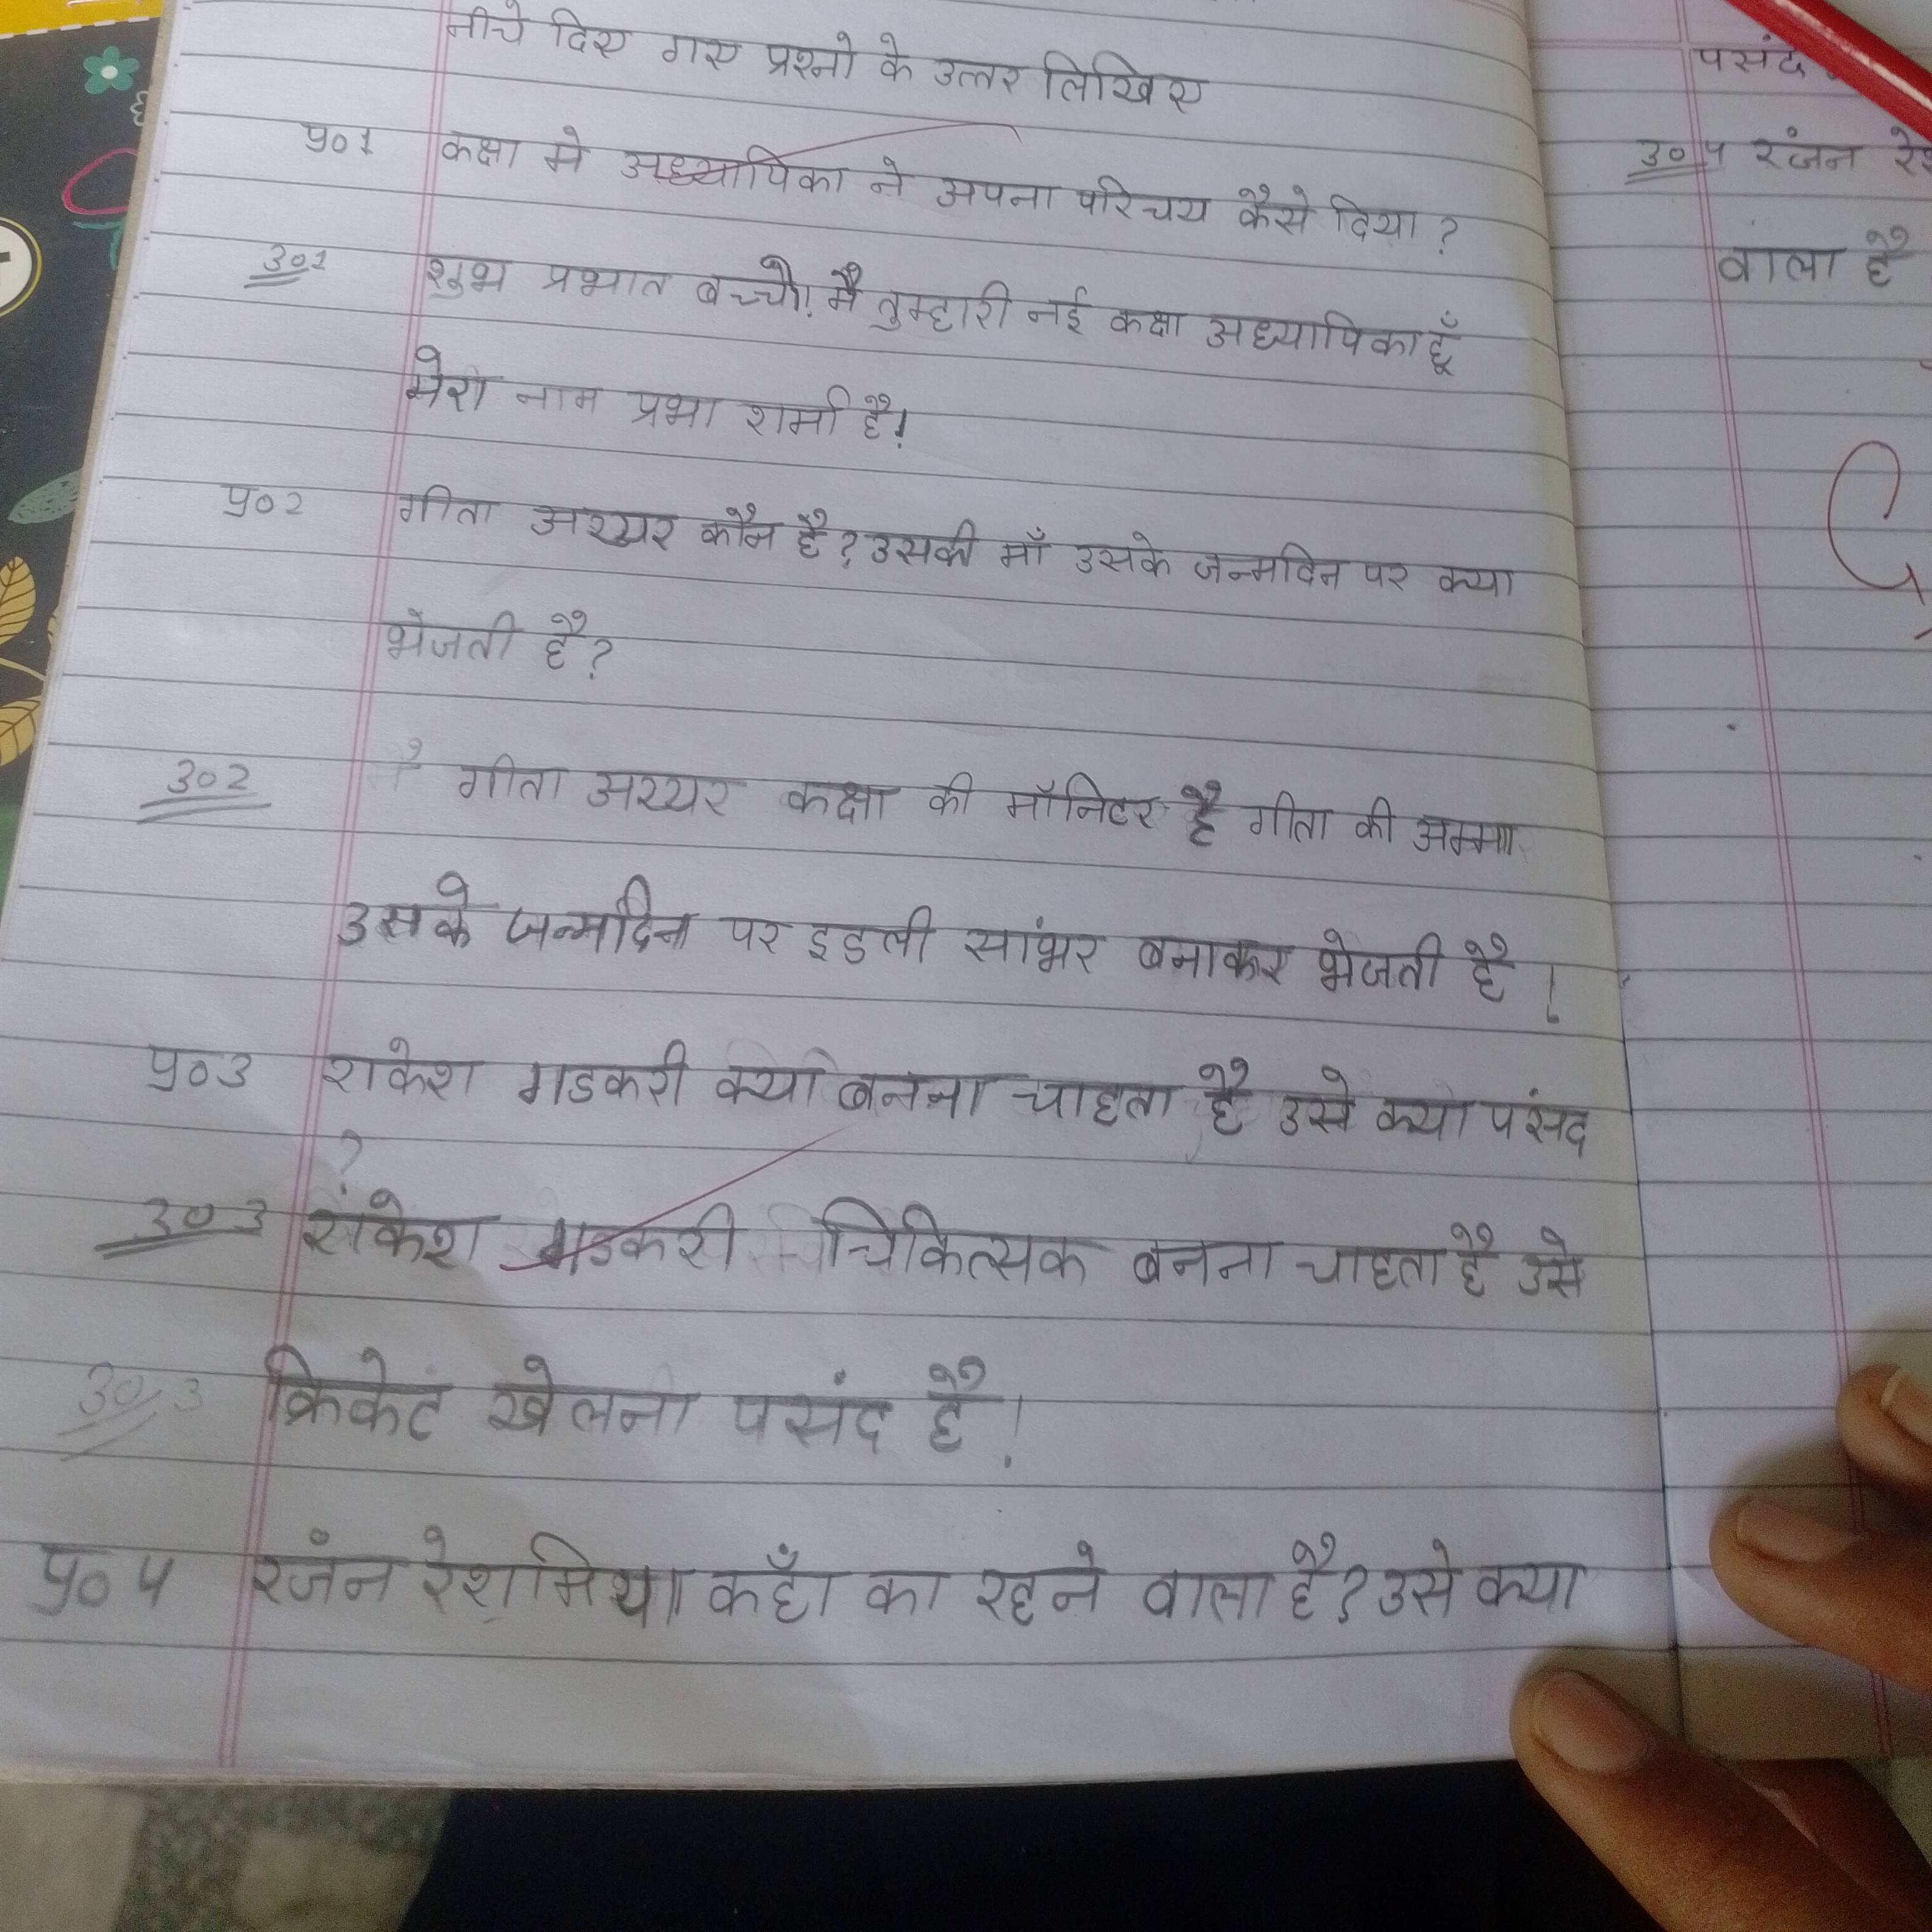 नीचे दिए गए प्रश्नो के उत्तर लिखिए
प्र०1 कक्षा मे अध्यापिका ने अपना परिचय कैसे दिया ?
उ०1 शुभ प्रभात बच्चो! मै तुम्हारी नई कक्षा अध्यापिका हूँ
मेरा नाम प्रभा शर्मा है!
प्र०2 गीता अय्यर कौन है? उसकी माँ उसके जन्मदिन पर क्या
भेजती है?
उ०2 गीता अय्यर कक्षा की मॉनिटर है गीता की अम्मा
उसके जन्मदिन पर इडली सांभर बनाकर भेजती है !
प्र०3 राकेश गडकरी क्या बनना चाहता है उसे क्या पंसद
?
उ०3 राकेश गडकरी चिकित्सक बनना चाहता है उसे
उ०3 क्रिकेट खेलना पसंद है!
प्र०4 रंजन रेशमिया कहाँ का रहने वाला है? उसे क्या
पसंद
उ०4 रंजन
वाला है